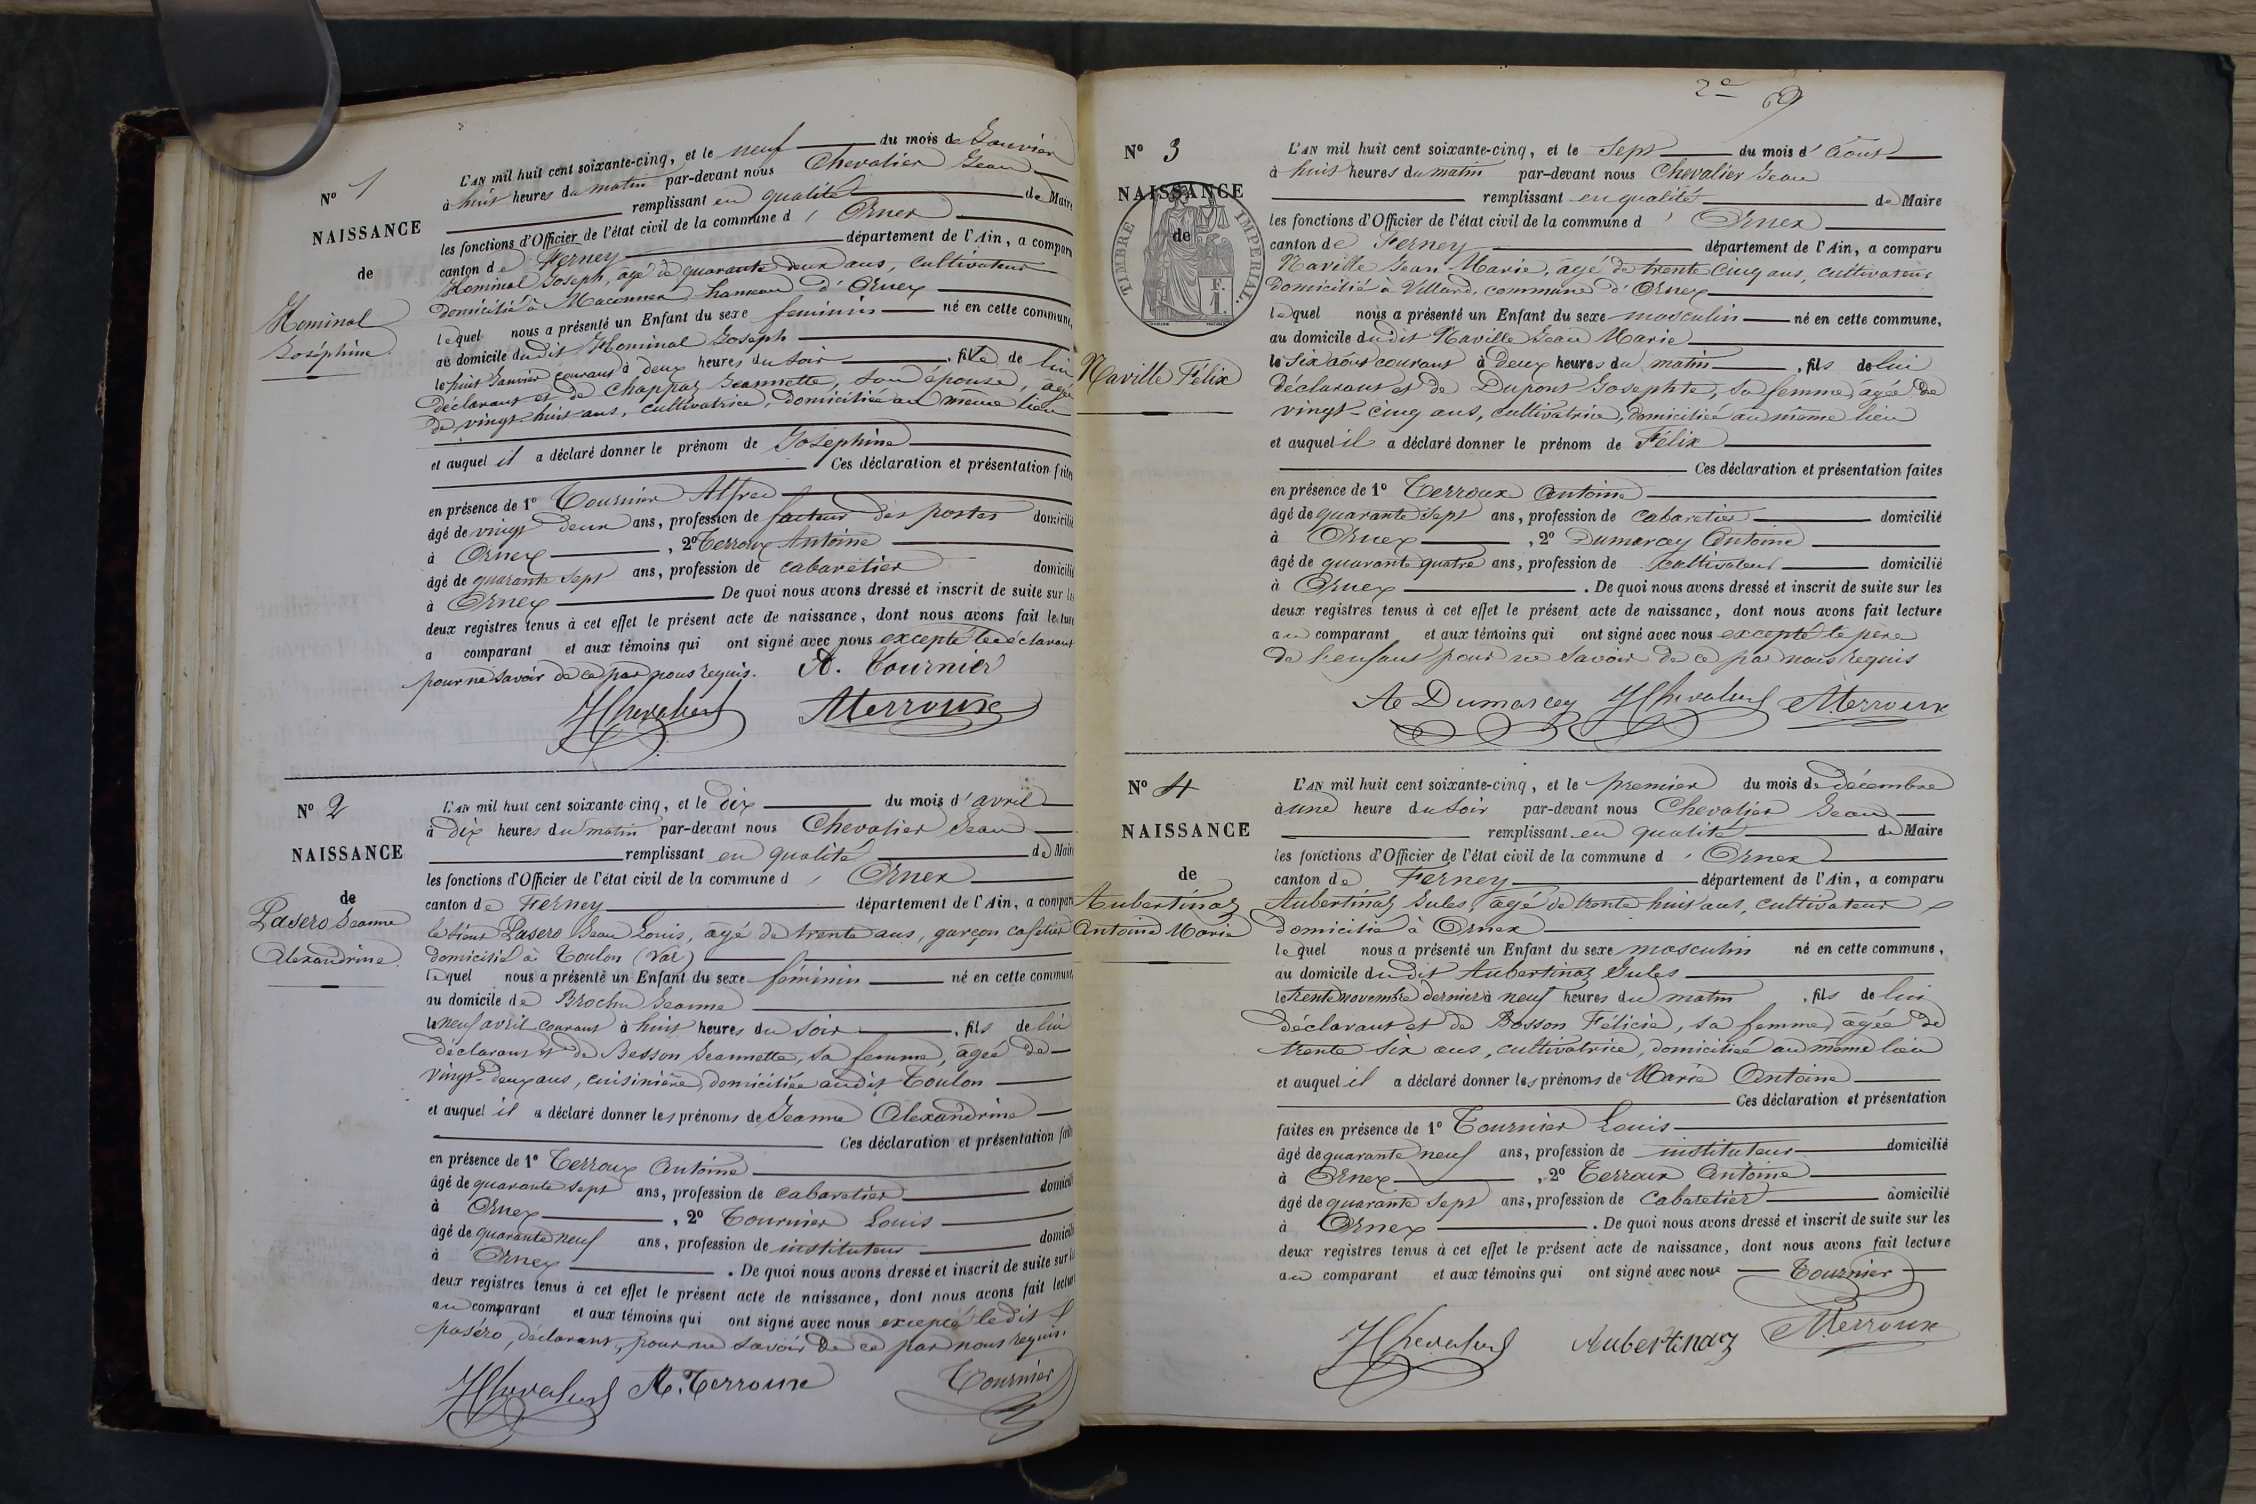 N° 1
NAISSANCE
de
Hominal
Joséphine
L'AN mil huit cent soixante-cinq, et le neuf du mois de Janvier
à huit heures du matin par-devant nous Chevalier Jean
remplissant en qualité de Maire
les fonctions d'Officier de l'état civil de la commune d' Ornex
canton de Ferney département de l'Ain, a comparu
Hominal Joseph, âgé de quarante deux ans, cultivateur
domicilié à Maconnex hameau d'Ornex
lequel nous a présenté un Enfant du sexe féminin né en cette commune,
au domicile dudit Hominal Joseph
le huit Janvier courant à deux heures du soir , fille de lui
déclarant et de Chappaz Jeannette, son épouse, âgée
de vingt-huit ans, cultivatrice, domiciliée au même lieu
et auquel il a déclaré donner le prénom de Joséphine
Ces déclaration et présentation faites
en présence de 1° Tournier Alfred
âgé de vingt deux ans, profession de facteur des postes domicilié
à Ornex , 2° Terroux Antoine
âgé de quarante sept ans, profession de cabaretier domicilié
à Ornex De quoi nous avons dressé et inscrit de suite sur les
deux registres tenus à cet effet le présent acte de naissance, dont nous avons fait lecture
a comparant et aux témoins qui ont signé avec nous excepté le déclarant
pour ne savoir de ce par nous requis. A. Tournier
J Chevalier A Terroux
N° 2
NAISSANCE
de
Pasero Jeanne
Alexandrine
L'AN mil huit cent soixante-cinq, et le dix du mois d'avril
à dix heures du matin par-devant nous Chevalier Jean
remplissant en qualité de Maire
les fonctions d'Officier de l'état civil de la commune d' Ornex
canton de Ferney département de l'Ain, a comparu
le sieur Pasero Jean Louis, âgé de trente ans, garçon cafetier
domicilié à Toulon (Var)
lequel nous a présenté un Enfant du sexe féminin né en cette commune,
au domicile de Brochu Jeanne
le neuf avril courant à huit heures du soir , fils de lui
déclarant et de Besson Jeannette, sa femme, âgée de
vingt-deux ans, cuisinière, domiciliée audit Toulon
et auquel il a déclaré donner les prénoms de Jeanne Alexandrine
Ces déclaration et présentation faites
en présence de 1° Terroux Antoine
âgé de quarante sept ans, profession de cabaretier domicilié
à Ornex , 2° Tournier Louis
âgé de quarante neuf ans, profession de instituteur domicilié
à Ornex . De quoi nous avons dressé et inscrit de suite sur les
deux registres tenus à cet effet le présent acte de naissance, dont nous avons fait lecture
au comparant et aux témoins qui ont signé avec nous excepté ledit
paséro, déclarant, pour ne savoir de ce par nous requis.
J Chevalier A. Terroux Tournier
2e 69
N° 3
NAISSANCE
de
TIMBRE IMPERIAL
F.
1.
Naville Félix
L'AN mil huit cent soixante-cinq, et le Sept du mois d'Août
à huit heures du matin par-devant nous Chevalier Jean
remplissant en qualité de Maire
les fonctions d'Officier de l'état civil de la commune d' Ornex
canton de Ferney département de l'Ain, a comparu
Naville Jean Marie, âgé de trente cinq ans, cultivateur
domicilié à Villard, commune d'Ornex
lequel nous a présenté un Enfant du sexe masculin né en cette commune,
au domicile dudit Naville Jean Marie
le six août courant à deux heures du matin , fils de lui
déclarant et de Dupont Josephte, sa femme, âgée de
vingt-cinq ans, cultivatrice, domiciliée au même lieu
et auquel il a déclaré donner le prénom de Félix
Ces déclaration et présentation faites
en présence de 1° Terroux Antoine
âgé de quarante sept ans, profession de cabaretier domicilié
à Ornex , 2° Dumarcey Antoine
âgé de quarante quatre ans, profession de cultivateur domicilié
à Ornex . De quoi nous avons dressé et inscrit de suite sur les
deux registres tenus à cet effet le présent acte de naissance, dont nous avons fait lecture
au comparant et aux témoins qui ont signé avec nous excepté le père
de l'enfant pour ne savoir de ce par nous requis
Ae Dumarcey J Chevalier A Terroux
N° 4
NAISSANCE
de
Aubertinaz
Antoine Marie
L'AN mil huit cent soixante-cinq, et le premier du mois de décembre
à une heure du soir par-devant nous Chevalier Jean
remplissant en qualité de Maire
les fonctions d'Officier de l'état civil de la commune d' Ornex
canton de Ferney département de l'Ain, a comparu
Aubertinaz Jules, âgé de trente huit ans, cultivateur
domicilié à Ornex
lequel nous a présenté un Enfant du sexe masculin né en cette commune,
au domicile dudit Aubertinaz Jules
le trente novembre dernier à neuf heures du matin , fils de lui
déclarant et de Bosson Félicie, sa femme, âgée de
trente six ans, cultivatrice, domiciliée au même lieu
et auquel il a déclaré donner les prénoms de Marie Antoine
Ces déclaration et présentation
faites en présence de 1° Tournier Louis
âgé de quarante neuf ans, profession de instituteur domicilié
à Ornex , 2° Terroux Antoine
âgé de quarante sept ans, profession de cabaretier domicilié
à Ornex . De quoi nous avons dressé et inscrit de suite sur les
deux registres tenus à cet effet le présent acte de naissance, dont nous avons fait lecture
au comparant et aux témoins qui ont signé avec nous Tournier
J Chevalier Aubertinaz A Terroux